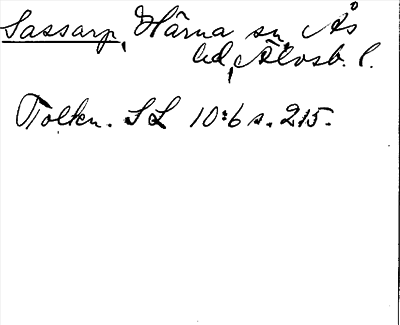 Sassarp, Härna sn, Ås
hd, Älvsb. l.
Tolkn. SL 10:6 s. 215.